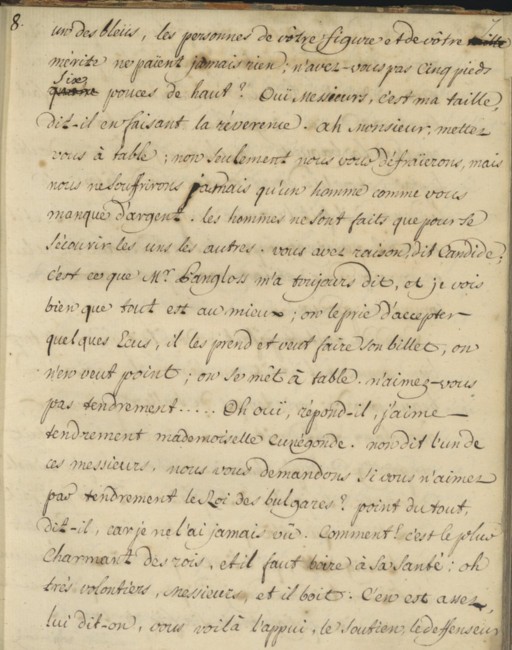 8. 7
un des bleüs, les personnes de vôtre figure et de vôtre
mérite ne païent jamais rien ; n'avez-vous pas cinq pieds
six
quatre pouces de haut ? Ouï, Messieurs, c'est ma taille,
dit-il en faisant la réverence. Ah Monsieur, mettez
vous à table ; non seulement nous vous défraïerons, mais
nous ne souffrirons jamais qu'un homme comme vous
manque d'argent. les hommes ne sont faits que pour se
sécourir les uns les autres. vous avez raison, dit Candide ;
c'est ce que Mr. Pangloss m'a toujours dit, et je vois
bien que tout est au mieux ; on le prie d'accepter
quelques Ecus, il les prend et veut faire son billet, on
n'en veut point ; on se mêt à table. n'aimez-vous
pas tendrement ..... Oh ouï, répond-il, j'aime
tendrement mademoiselle Cunégonde. non dit l'un de
ces messieurs, nous vous demandons si vous n'aimez
pas tendrement le Roi des bulgares ? point du tout,
dit-il, car je ne l'ai jamais vû. Comment ! c'est le plus
Charmant des rois, et il faut boire à sa santé : oh
très volontiers, Messieurs, et il boit. C'en est assez,
lui dit-on, vous voilà l'appui, le soutien, le deffenseur